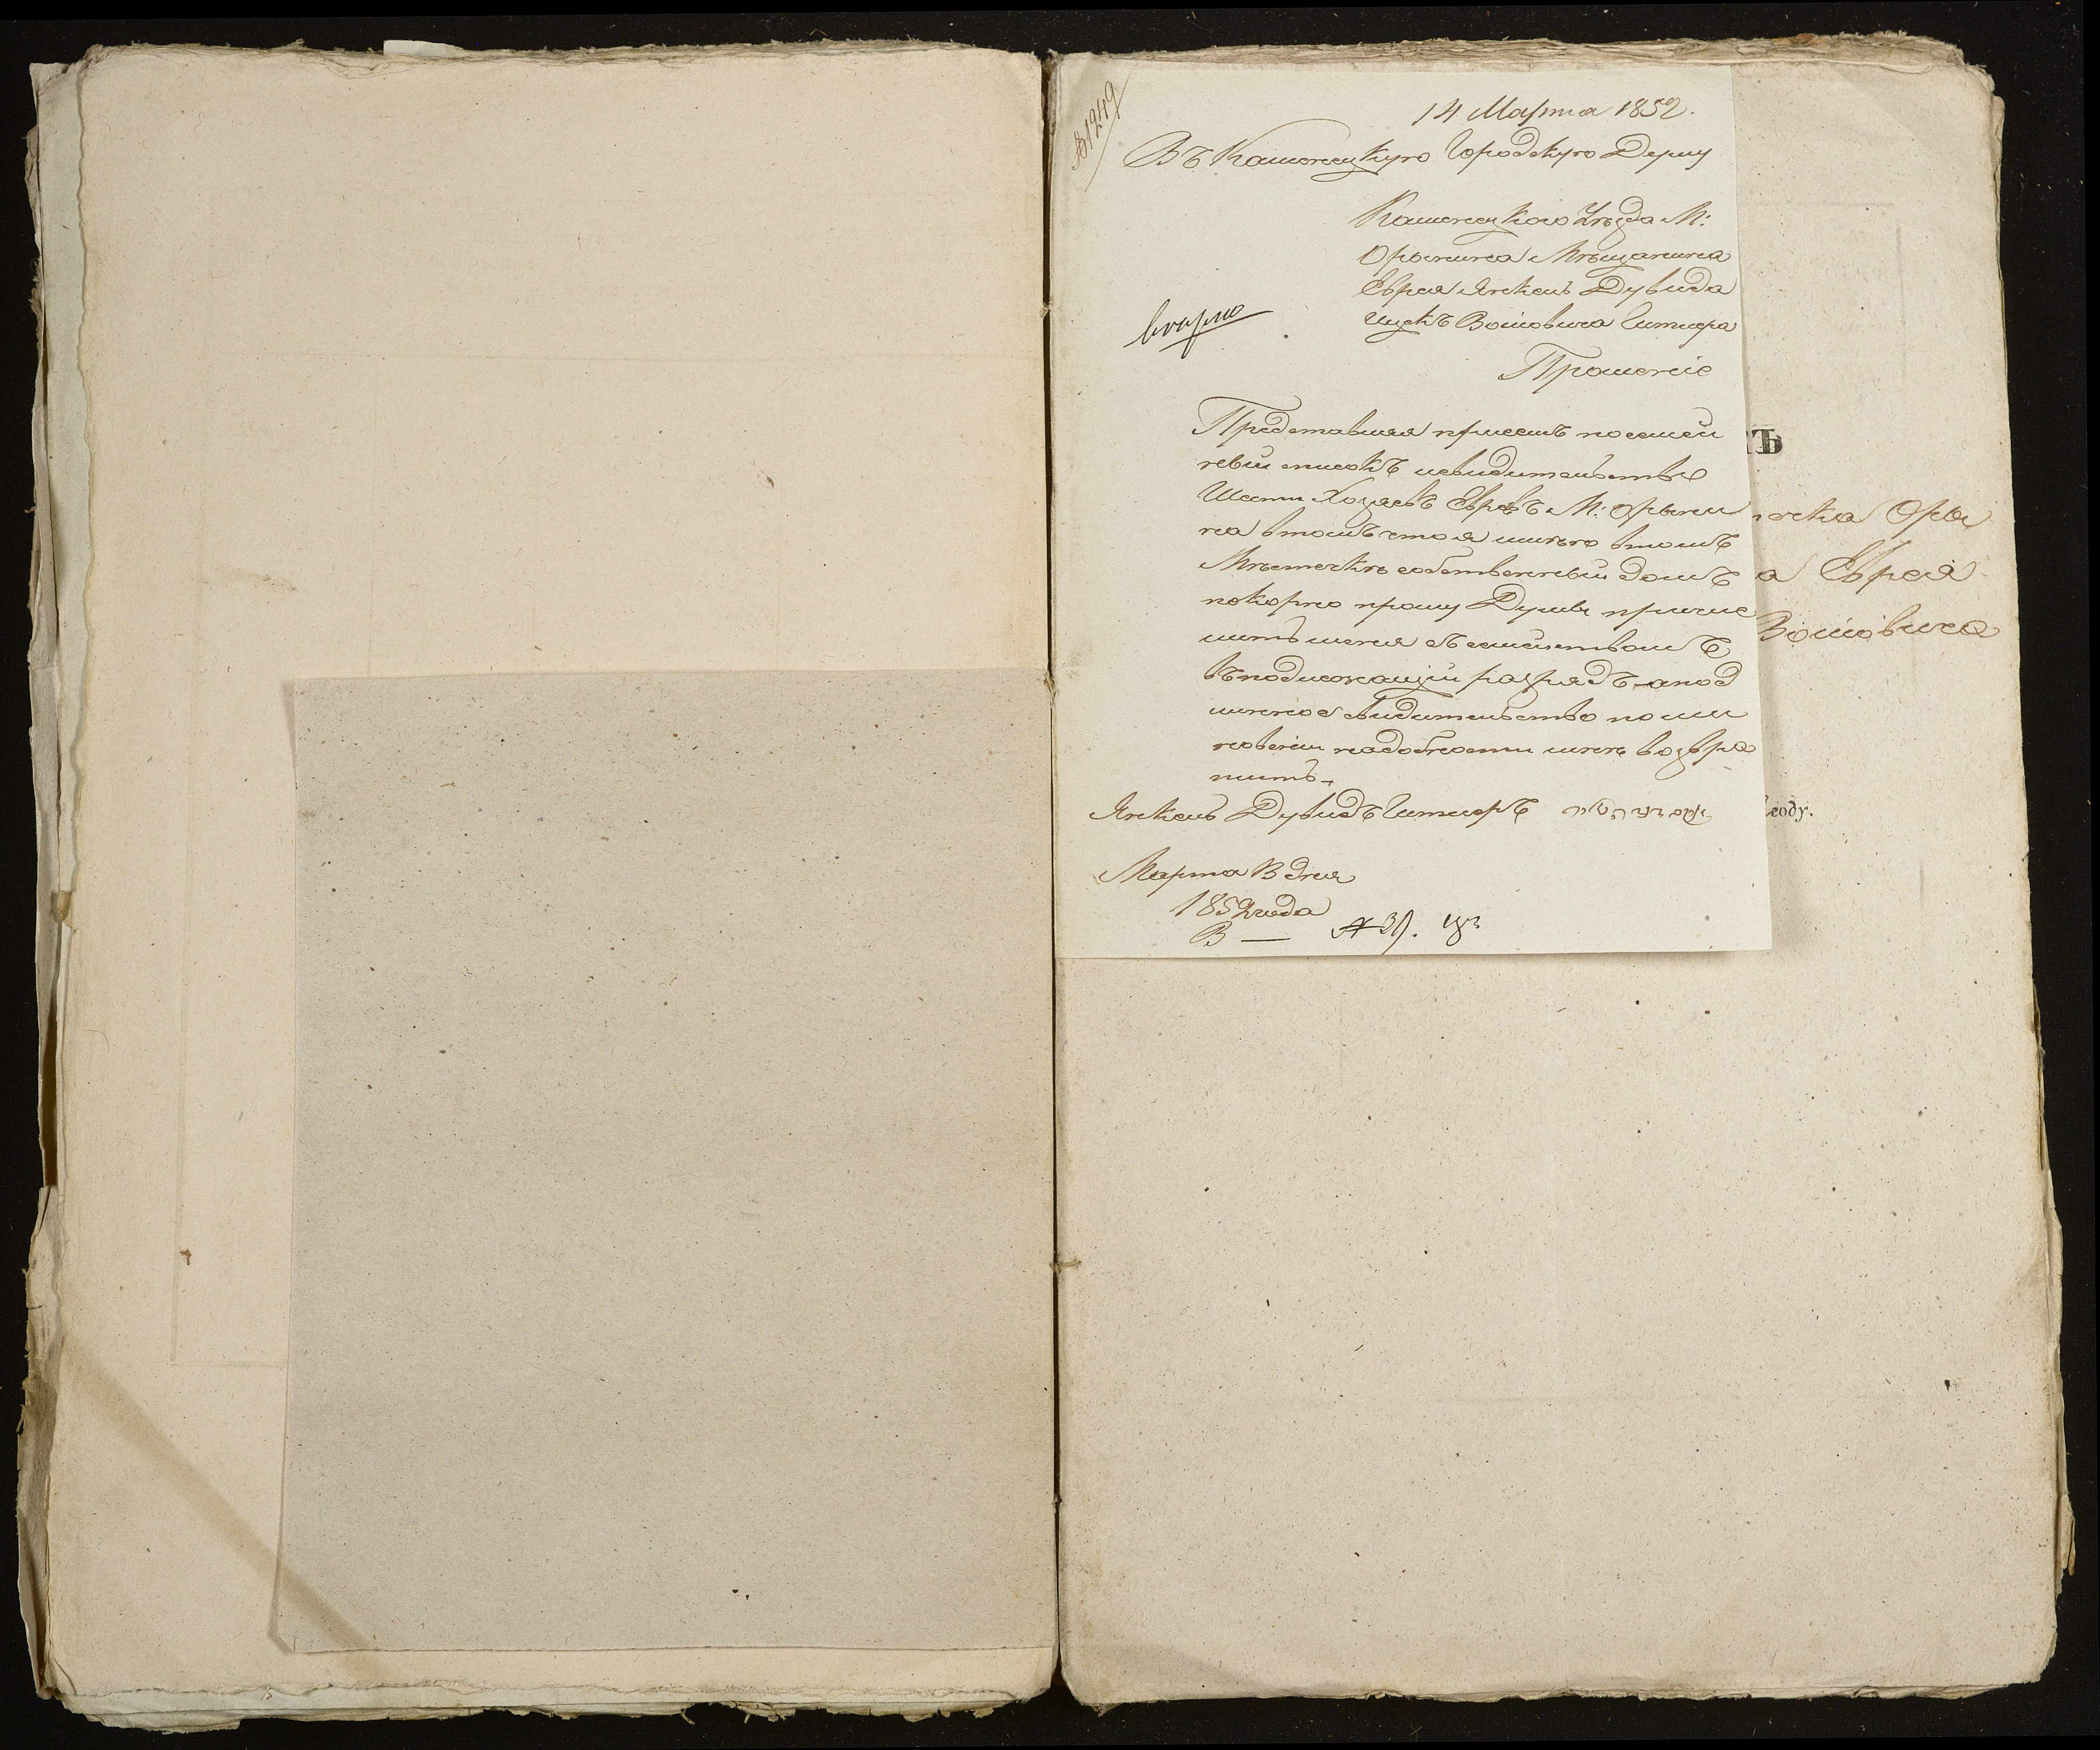 № 1249
14 Марта 1852.
Въ Каменецкую Городскую Думу
Каменецкого Уезда М:
Орынина Мѣщанина
Еврея Янкель Дувида
Ицкъ Волковича Гитлера
Прошеніе
Представляя присемъ посемей
ный списокъ исвидительство
Шести Хозяевъ Евреевъ М: Орыни
на втомъ что я имѣю втомъ
Мѣстечкѣ собственный домъ
покорно прошу Думы причис
лить меня съ семействомъ
въ подлежащій разрядъ а под
линное свидительство по ми
новеніи надобности мнѣ возвра
тить.
Янкель Дувидъ Гитлеръ
Марта В дня
1852 года
В —
ТЪ
течка Оры
а Еврея
году.